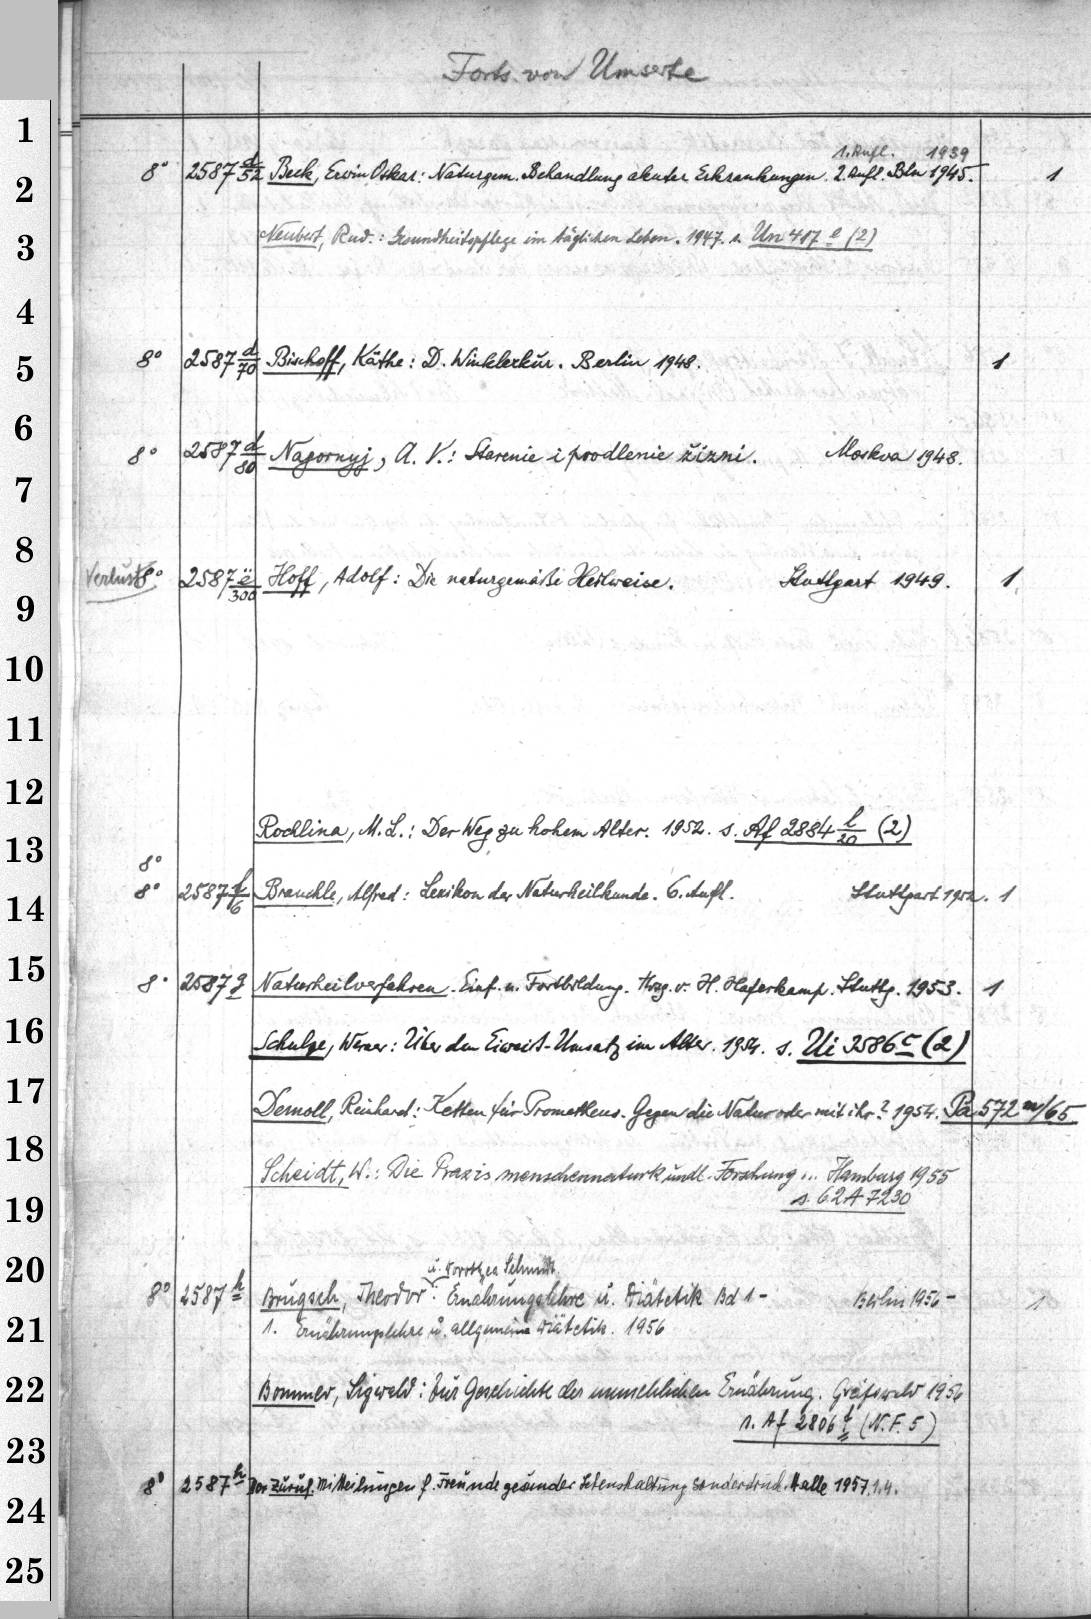 Forts. von Umseite
1
1. Aufl. 1939
2 8° 2587 d/52 Beck, Erwin Oskar: Naturgem. Behandlung akuter Erkrankungen. 2. Aufl. Bln 1945. 1
3 Neubert, Rud.: Gesundheitspflege im täglichen Leben. 1947. s. Un 417 e (2)
4
5 8° 2587 d/70 Bischoff, Käthe: D. Winklerkur. Berlin 1948. 1
6 8° 2587 d/80 Nagornyj, A. V.: Starenie i prodlenie žizni. Moskva 1948.
7
8
Verlust 8° 2587 ë/300 Hoff, Adolf: Die naturgemäße Heilweise. Stuttgart 1949. 1
9
10
11
12
Rochlina, M. L.: Der Weg zu hohem Alter. 1952. s. Af 2884 l/20 (2)
13
8°
14 8° 2587 f/6 Brauchle, Alfred: Lexikon der Naturheilkunde. 6. Aufl. Stuttgart 1952. 1
15 8° 2587 g Naturheilverfahren. Einf. u. Fortbildung. Hrsg. v. H. Haferkamp. Stuttg. 1953. 1
16 Schulze, Werner: Über den Eiweiß-Umsatz im Alter. 1954. s. Ui 3586 c (2)
17 Demoll, Reinhard: Ketten für Prometheus. Gegen die Natur oder mit ihr? 1954. Pa 572 m/65
18 Scheidt, W.: Die Praxis menschennaturkundl. Forschung ... Hamburg 1955
19 s. 62 A 7230
20 u. Dorothea Schmidt
8° 2587 h Brugsch, Theodor: Ernährungslehre u. Diätetik Bd 1 - Berlin 1956 - 1
21 1. Ernährungslehre u. allgemeine Diätetik. 1956
22 Bommer, Sigwald: Zur Geschichte der menschlichen Ernährung. Greifswald 1956
s. Af 2806 f (N.F. 5)
23
8° 2587 h Der Zuruf. Mitteilungen f. Freunde gesunder Lebenshaltung Sonderdruck. Halle 1957,1.4.
24
25